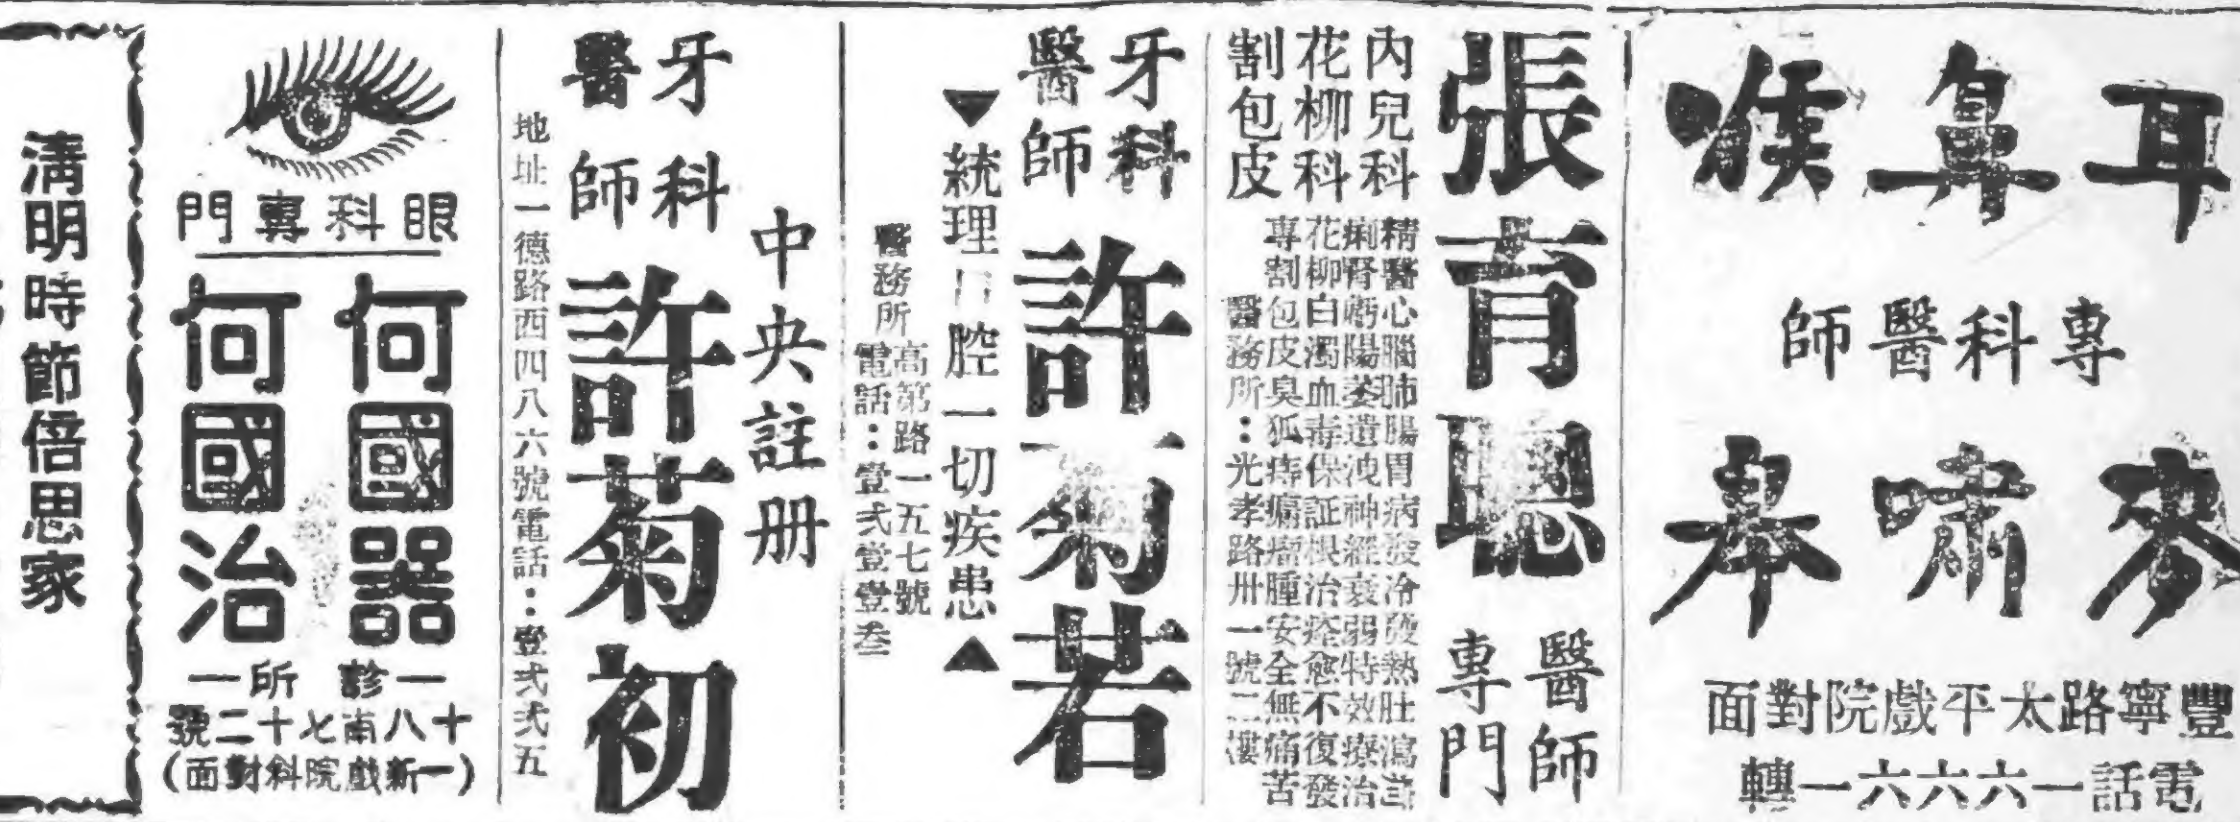 耳鼻喉
專科醫師
麥嘯皋
豐寧路太平戲院對面
電話一六六六一轉
張育聰
醫師
專門
內兒科
花柳科
割包皮
精醫心腦肺腸胃病發冷發熱肚瀉
痢腎虧陽萎遺洩神經衰弱特效療治
花柳白濁血毒保証根治痊愈不復發
專割包皮臭狐痔瘺瘤腫安全無痛苦
醫務所：光孝路卅一號二樓
牙科
醫師
許菊若
▼統理口腔一切疾患▲
醫務所
高第路一五七號
電話：壹弍壹壹叁
中央註册
牙科
醫師
許菊初
地址一德路西四八六號電話：壹弍弍五
眼科專門
何國器
何國治
一診所一
十八甫七十二號
(一新戲院斜對面)
清明時節倍思家